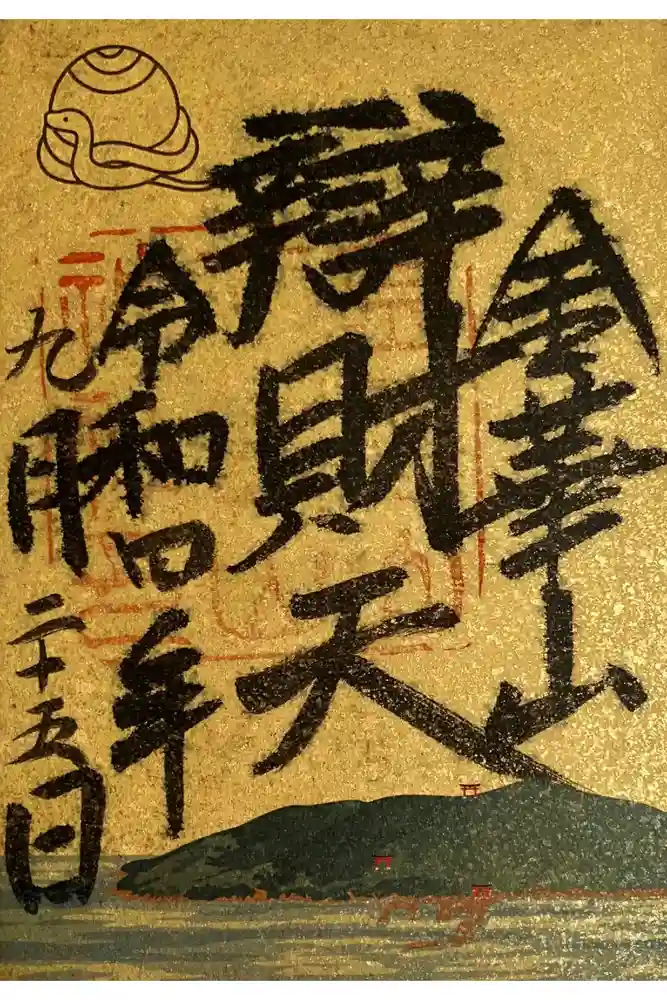 金華山
辯財天
令和四年
九月二十五日